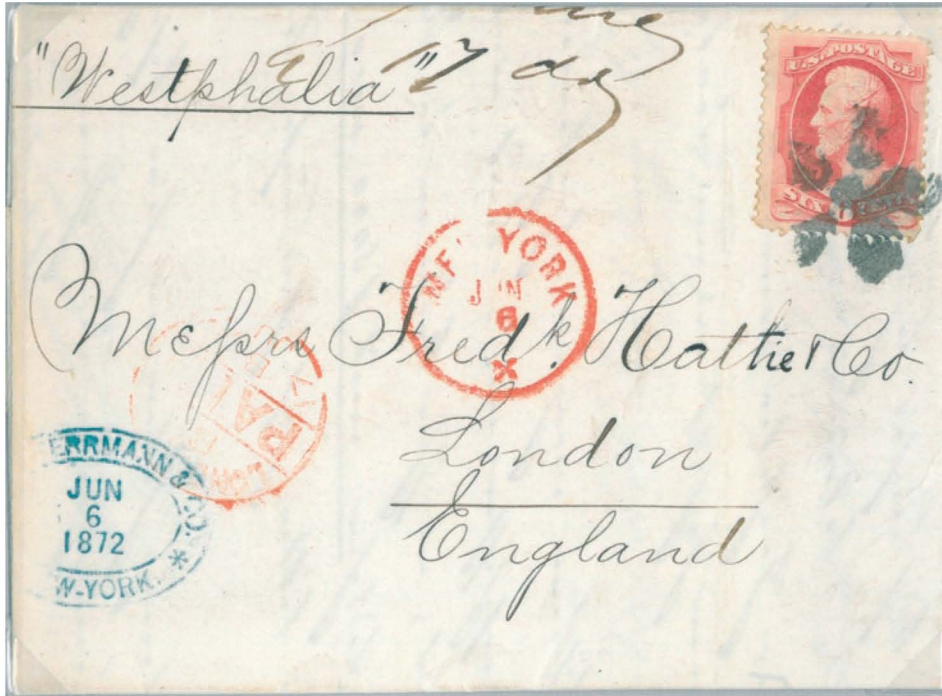 "Westphalia"
U.S. POSTAGE
SIX CENTS
NEW YORK
JUN
6
X
Messrs Fredk. Hathie & Co.
London
England
PAI
ERRMANN & CO.
JUN
6
1872
W-YORK. *